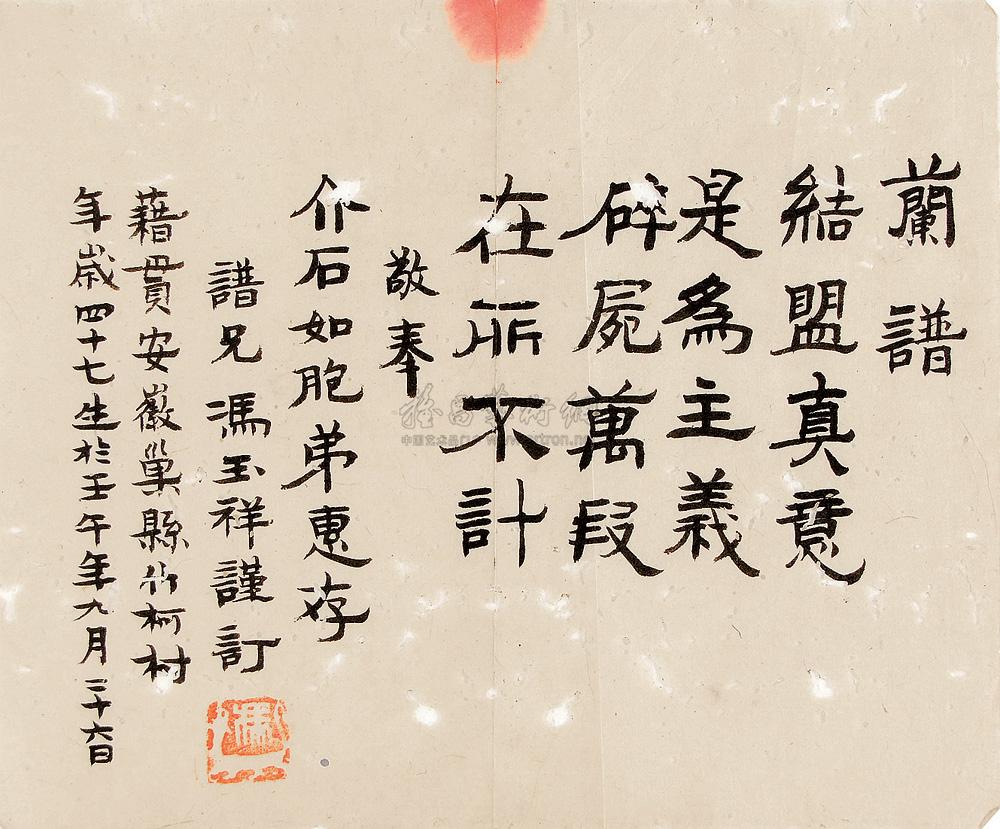 蘭譜
結盟真意
是為主義
碎屍萬段
在所不計
敬奉
介石如胞弟惠存
譜兄馮玉祥謹訂
藉貫安徽巢縣竹柯村
年歲四十七生於壬午年九月二十六日
中国艺术品门户 www.artron.net